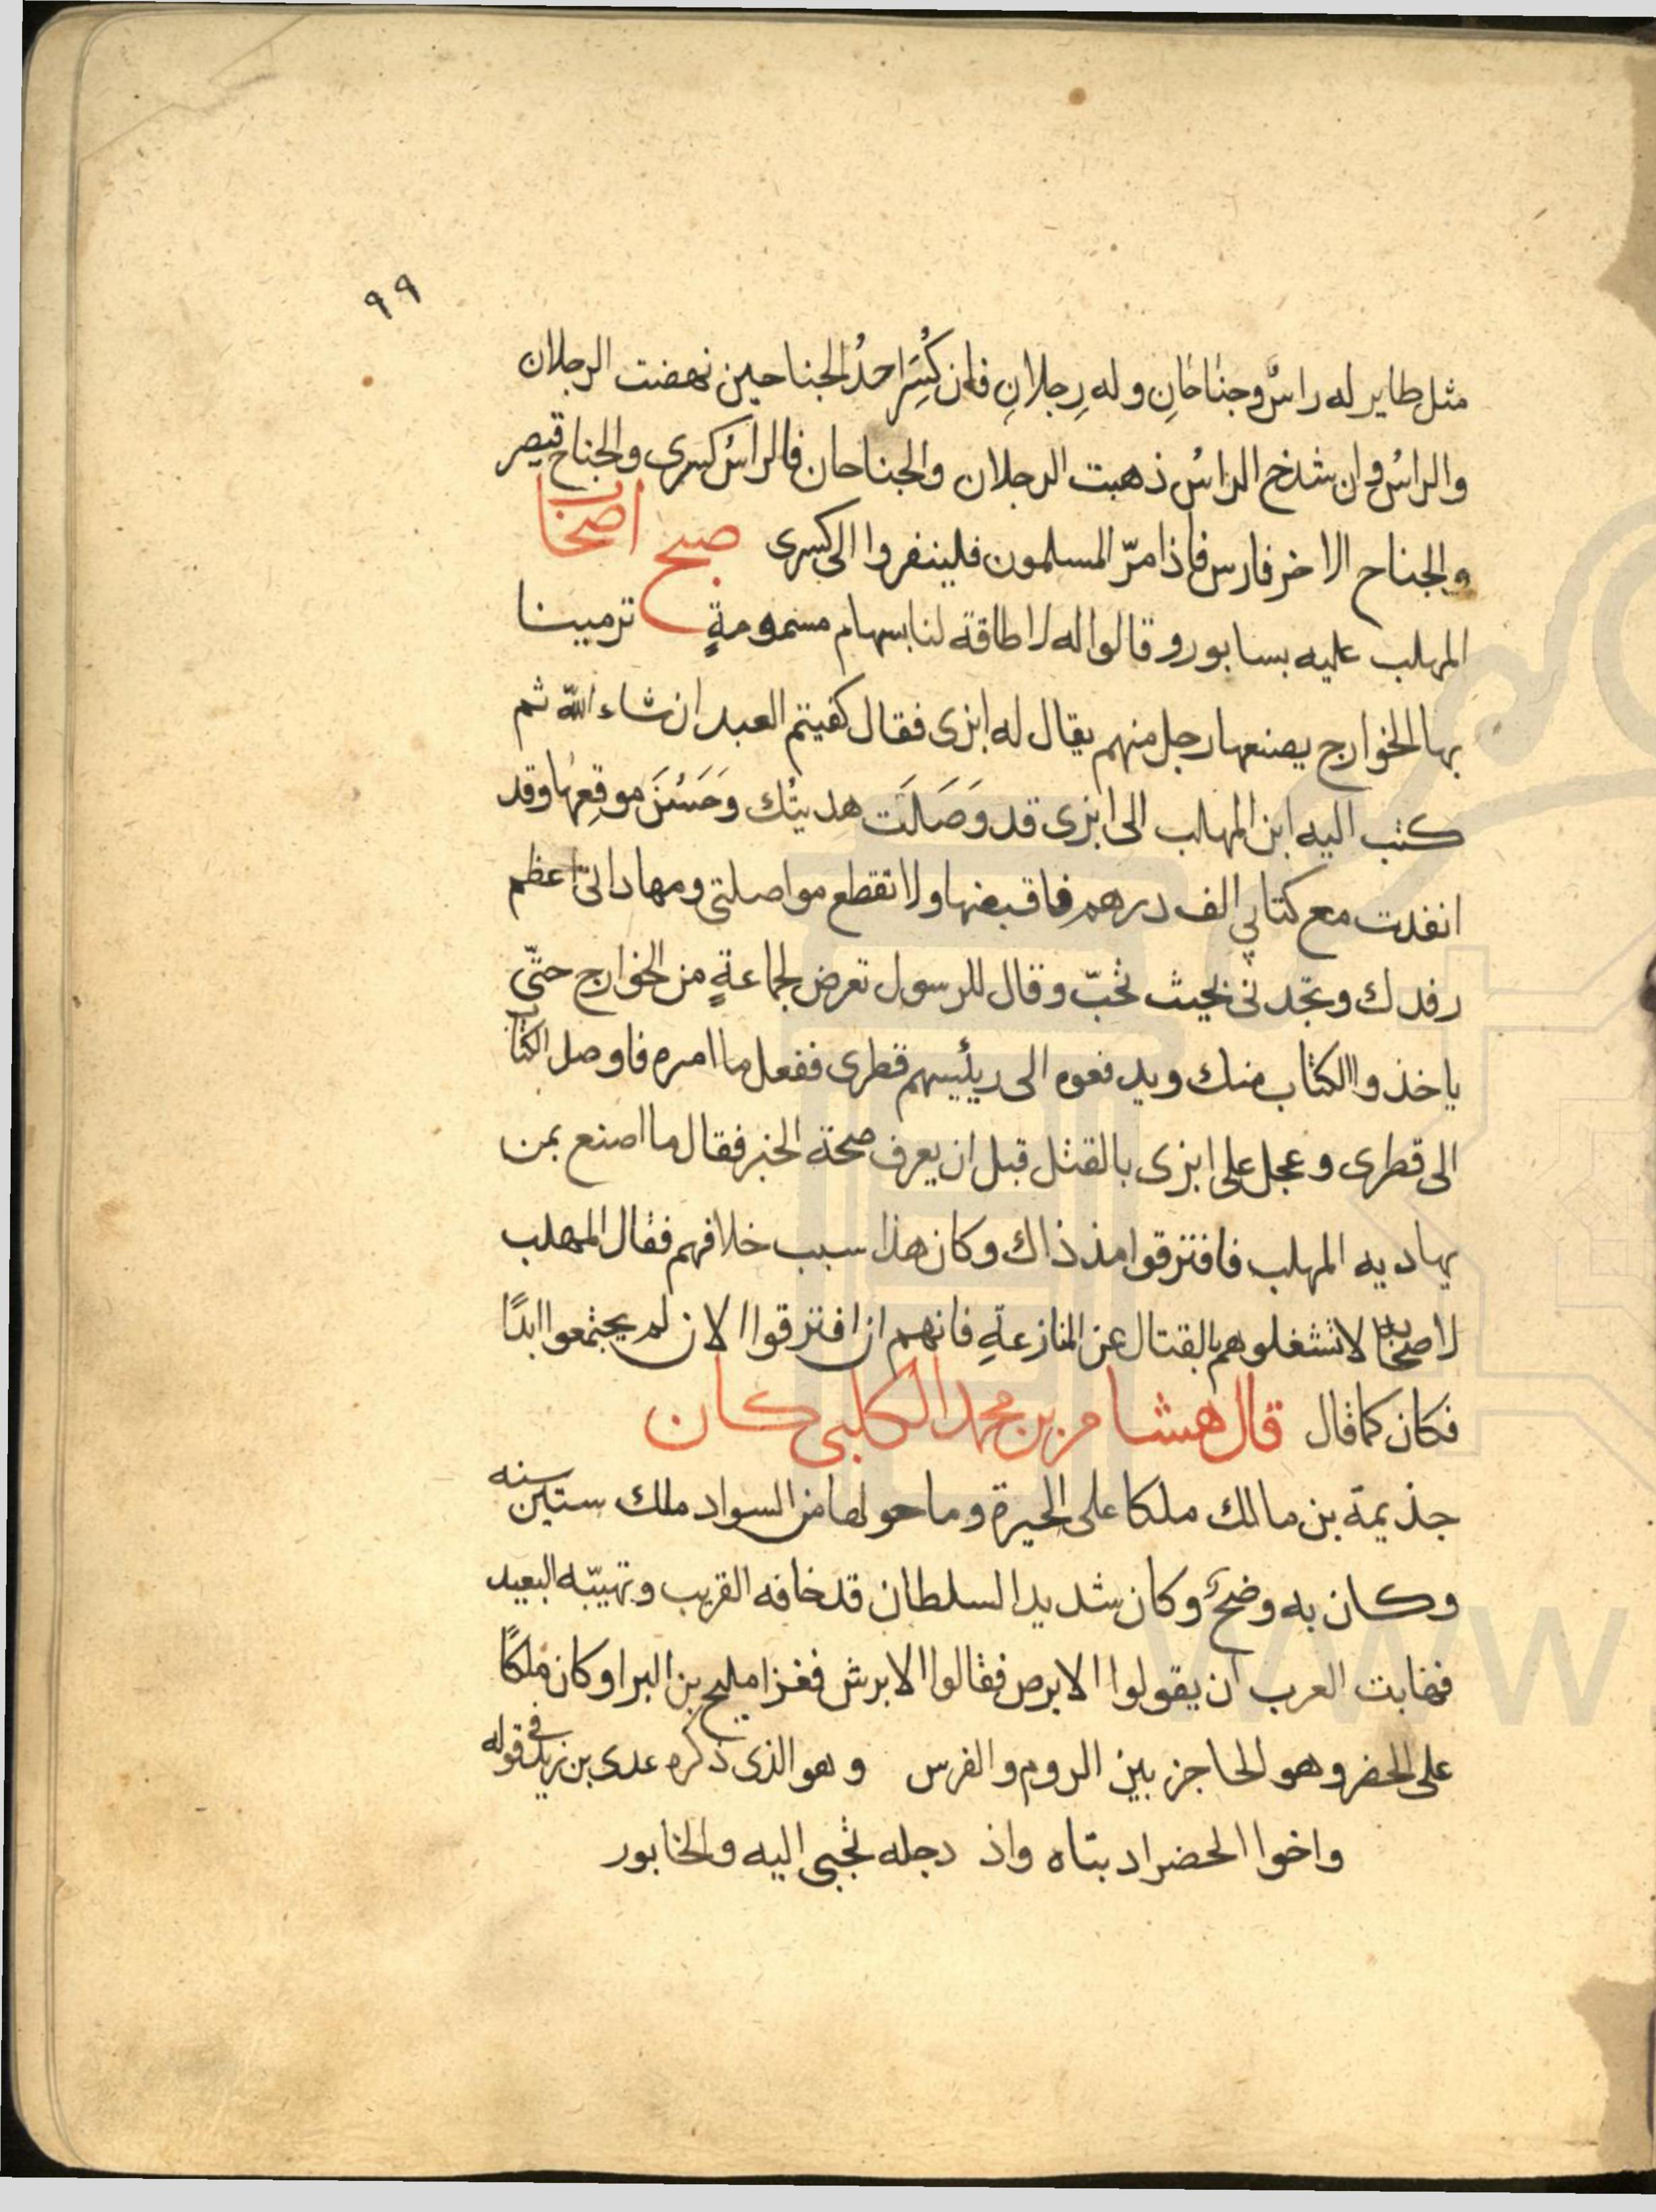 ٩٩
مثل طاير له راسٌ وجناحانِ وله رِجلانِ فان كُسِرَ احدُ الجناحين نهضت الرجلان
والراسُ وان شدخ الراسُ ذهبت الرجلان والجناحان فالراسُ كسرى والجناح قيصر
والجناح الاخر فارس فاذا مرّ المسلمون فلينفروا الى كسرى صبح اصحاب
المهلب عليه بسابور وقالوا له لا طاقة لنا بسهام مسمومةٍ ترمينا
بها الخوارج يصنعها رجل منهم يقال له ابزى فقال كفيتم العبد ان شاء الله ثم
كتب اليه ابن المهلب الى ابزى قد وَصَلَت هديتُك وَحَسُنَ موقِعها وقد
انفدت مع كتابي الف درهم فاقبضها ولا تقطع مواصلتي ومهاداتى اعظم
رفدك وتجدنى بحيث تحبّ وقال للرسول تعرض لجماعةٍ من الخوارج حتّى
ياخذوا الكتاب منك ويدفعوه الى رئيسهم قطرى ففعل ما امره فاوصل الكتاب
الى قطرى وعجل على ابزى بالقتل قبل ان يعرف صحة الخبر فقال ما اصنع بمن
يهاديه المهلب فافترقوا مذ ذاك وكان هذا سبب خلافهم فقال المهلب
لاصحابه لا تشغلوهم بالقتال عن المنازعةِ فانهم ان افترقوا الان لم يجتمعوا ابدًا
فكان كما قال قال هشام بن محمد الكلبي كان
جذيمة بن مالك ملكا على الحيرة وما حولها من السواد ملك ستين سنه
وكان به وضحٌ وكان شديد السلطان قد خافه القريب وتهيّبه البعيد
فهابت العرب ان يقولوا الابرص فقالوا الابرش فغزا مليح بن البرا وكان ملكًا
على الحضر وهو الحاجز بين الروم والفرس وهو الذى ذكره عدى بن زيد فى قوله
واخوا الحضر اد بناه واذ دجله تجبى اليه والخابور